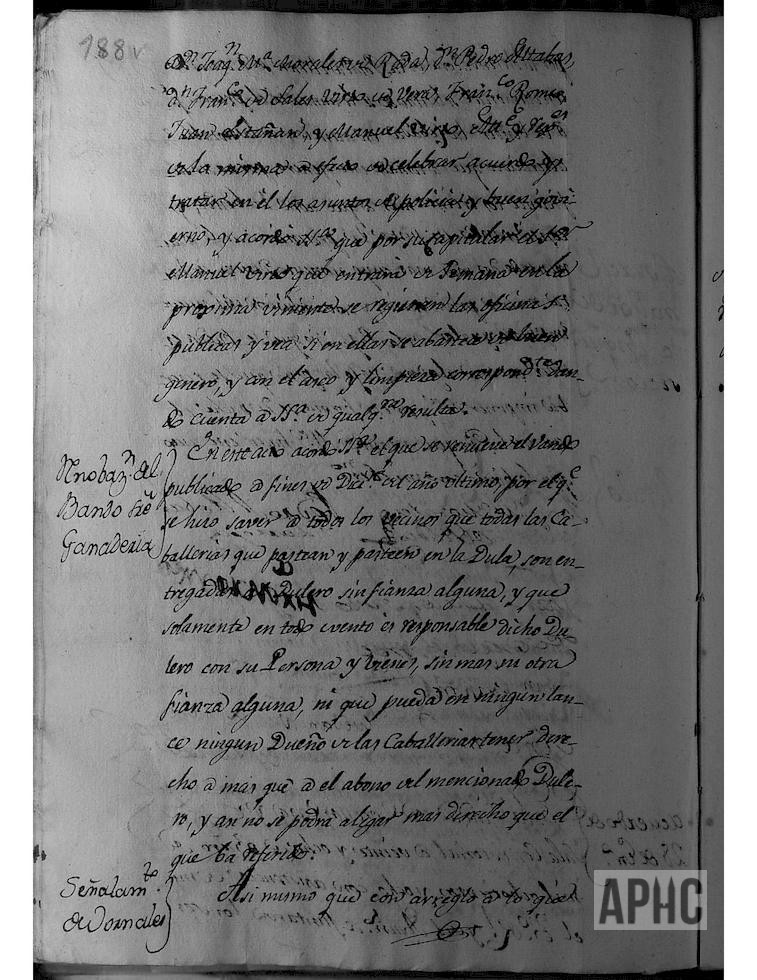 188v
Dn. Joaqn. Ma. Morales de Rada, Dn. Pedro
dn. Franco. de Sales Virto de Vera, Franco. Romeo,
Juan Estañan, y Manuel Virto, y
de la misma a efecto de celebrar acuerdo y
tratar en él los asuntos de policia y buen govi-
erno, y acordó Sª que por su capitular el Sor.
Manuel Virto que entrará de Semana en la
proxima viniente se registren las oficinas
publicas y vea si en ellas se abastece de buen
genero, y con el aseo y limpieza correspondte. dan-
do cuenta a Sª de qualqra. resulta.
En este acto acordó Sª el que se renueve el Vando
publicado a fines de Dice. del año ultimo, por el qe.
se hizo saver a todos los vecinos que todas las Ca-
ballerias que pastean y pasteen en la Dula, son en-
tregadas a Dulero sin fianza alguna, y que
solamente en todo evento es responsable dicho Du
lero con su Persona y vienes, sin mas ni otra
fianza alguna, ni que pueda en ningun lan-
ce ningun Dueño de las Caballerias tener dere-
cho a mas que a el abono del mencionado Dule-
ro, y asi no se podrá alegar mas derecho que el
que va referido.
Rnobazn. del
Bando Sre.
Ganaderia
Asi mismo que con arreglo a lo que
Señalamto.
de Jornales
APHC